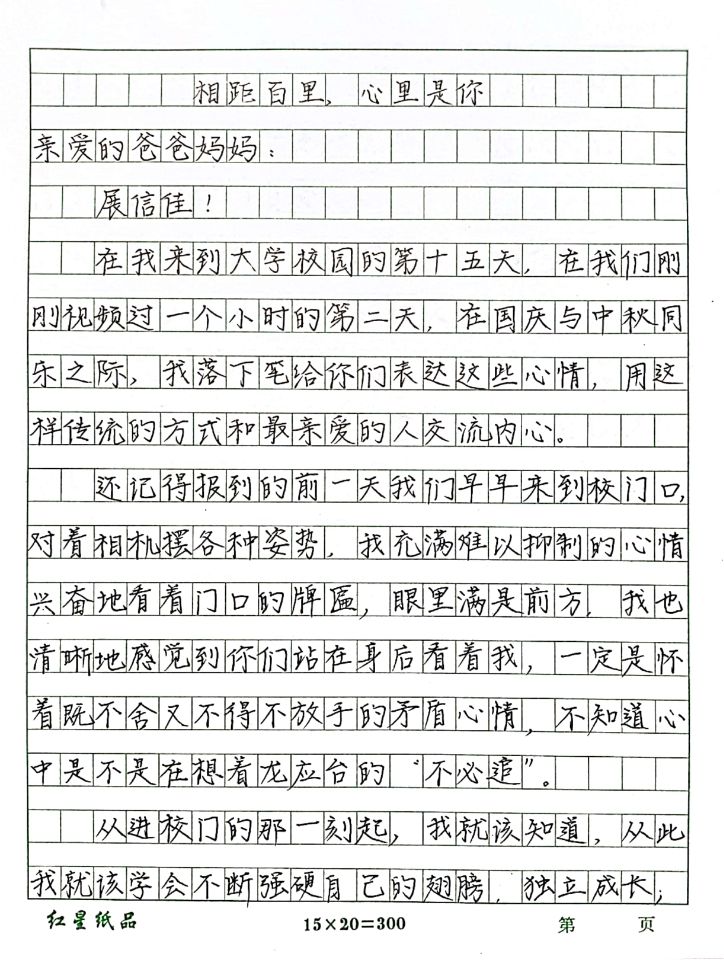 相距百里，心里是你
亲爱的爸爸妈妈：
展信佳！
在我来到大学校园的第十五天，在我们刚
刚视频过一个小时的第二天，在国庆与中秋同
乐之际，我落下笔给你们表达这些心情，用这
样传统的方式和最亲爱的人交流内心。
还记得报到的前一天我们早早来到校门口，
对着相机摆各种姿势，我充满难以抑制的心情
兴奋地看着门口的牌匾，眼里满是前方，我也
清晰地感觉到你们站在身后看着我，一定是怀
着既不舍又不得不放手的矛盾心情，不知道心
中是不是在想着龙应台的“不必追”。
从进校门的那一刻起，我就该知道，从此
我就该学会不断强硬自己的翅膀，独立成长；
红星纸品 15×20=300 第 页